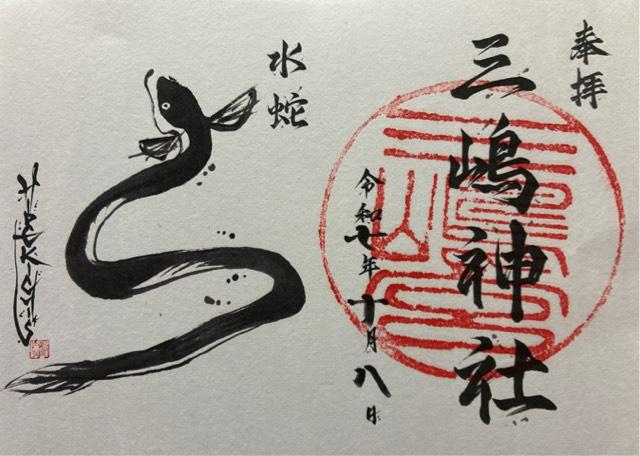 奉拝
三嶋神社
令和七年十月八日
水蛇